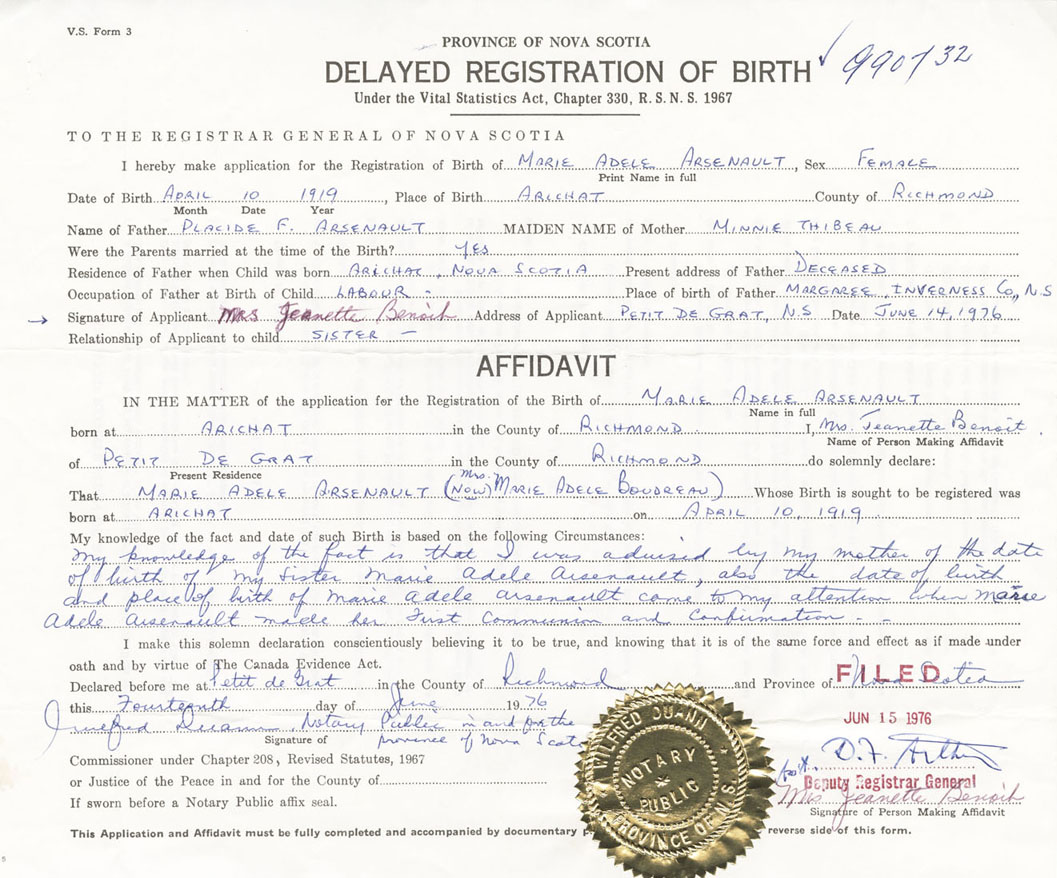 V.S. Form 3
PROVINCE OF NOVA SCOTIA
DELAYED REGISTRATION OF BIRTH ✓ 990732
Under the Vital Statistics Act, Chapter 330, R.S.N.S. 1967
TO THE REGISTRAR GENERAL OF NOVA SCOTIA
I hereby make application for the Registration of Birth of MARIE ADELE ARSENAULT, Sex FEMALE
Print Name in full
Date of Birth APRIL 10 1919, Place of Birth ARICHAT County of RICHMOND
Month Date Year
Name of Father PLACIDE F. ARSENAULT MAIDEN NAME of Mother MINNIE THIBEAU
Were the Parents married at the time of the Birth? YES
Residence of Father when Child was born ARICHAT, NOVA SCOTIA Present address of Father DECEASED
Occupation of Father at Birth of Child LABOUR - Place of birth of Father MARGAREE, INVERNESS Co., N.S
→ Signature of Applicant Mrs Jeanette Benoit Address of Applicant PETIT DE GRAT, N.S Date JUNE 14, 1976
Relationship of Applicant to child SISTER -
AFFIDAVIT
IN THE MATTER of the application for the Registration of the Birth of MARIE ADELE ARSENAULT
Name in full
born at ARICHAT in the County of RICHMOND I, Mrs. Jeanette Benoit.
Name of Person Making Affidavit
of PETIT DE GRAT in the County of RICHMOND do solemnly declare:
Present Residence
That MARIE ADELE ARSENAULT (NOW) Mrs. MARIE ADELE BOUDREAU) Whose Birth is sought to be registered was
born at ARICHAT on APRIL 10, 1919
My knowledge of the fact and date of such Birth is based on the following Circumstances:
My knowledge of the fact is that I was advised by my mother of the date
of birth of my sister Marie Adele Arsenault, also the date of birth
and place of birth of Marie Adele Arsenault came to my attention when Marie
Adele Arsenault made her First Communion and Confirmation. -
I make this solemn declaration conscientiously believing it to be true, and knowing that it is of the same force and effect as if made under
oath and by virtue of The Canada Evidence Act.
Declared before me at Petit de Grat in the County of Richmond and Province of Nova Scotia
FILED
this Fourteenth day of June 1976
JUN 15 1976
Notary Public in and for the
Signature of province of Nova Scot
Commissioner under Chapter 208, Revised Statutes, 1967
or Justice of the Peace in and for the County of
If sworn before a Notary Public affix seal.
WILFRED DUANN
NOTARY PUBLIC
PROVINCE OF N.S.
D.F.
Deputy Registrar General
Mrs Jeanette Benoit
Signature of Person Making Affidavit
This Application and Affidavit must be fully completed and accompanied by documentary reverse side of this form.